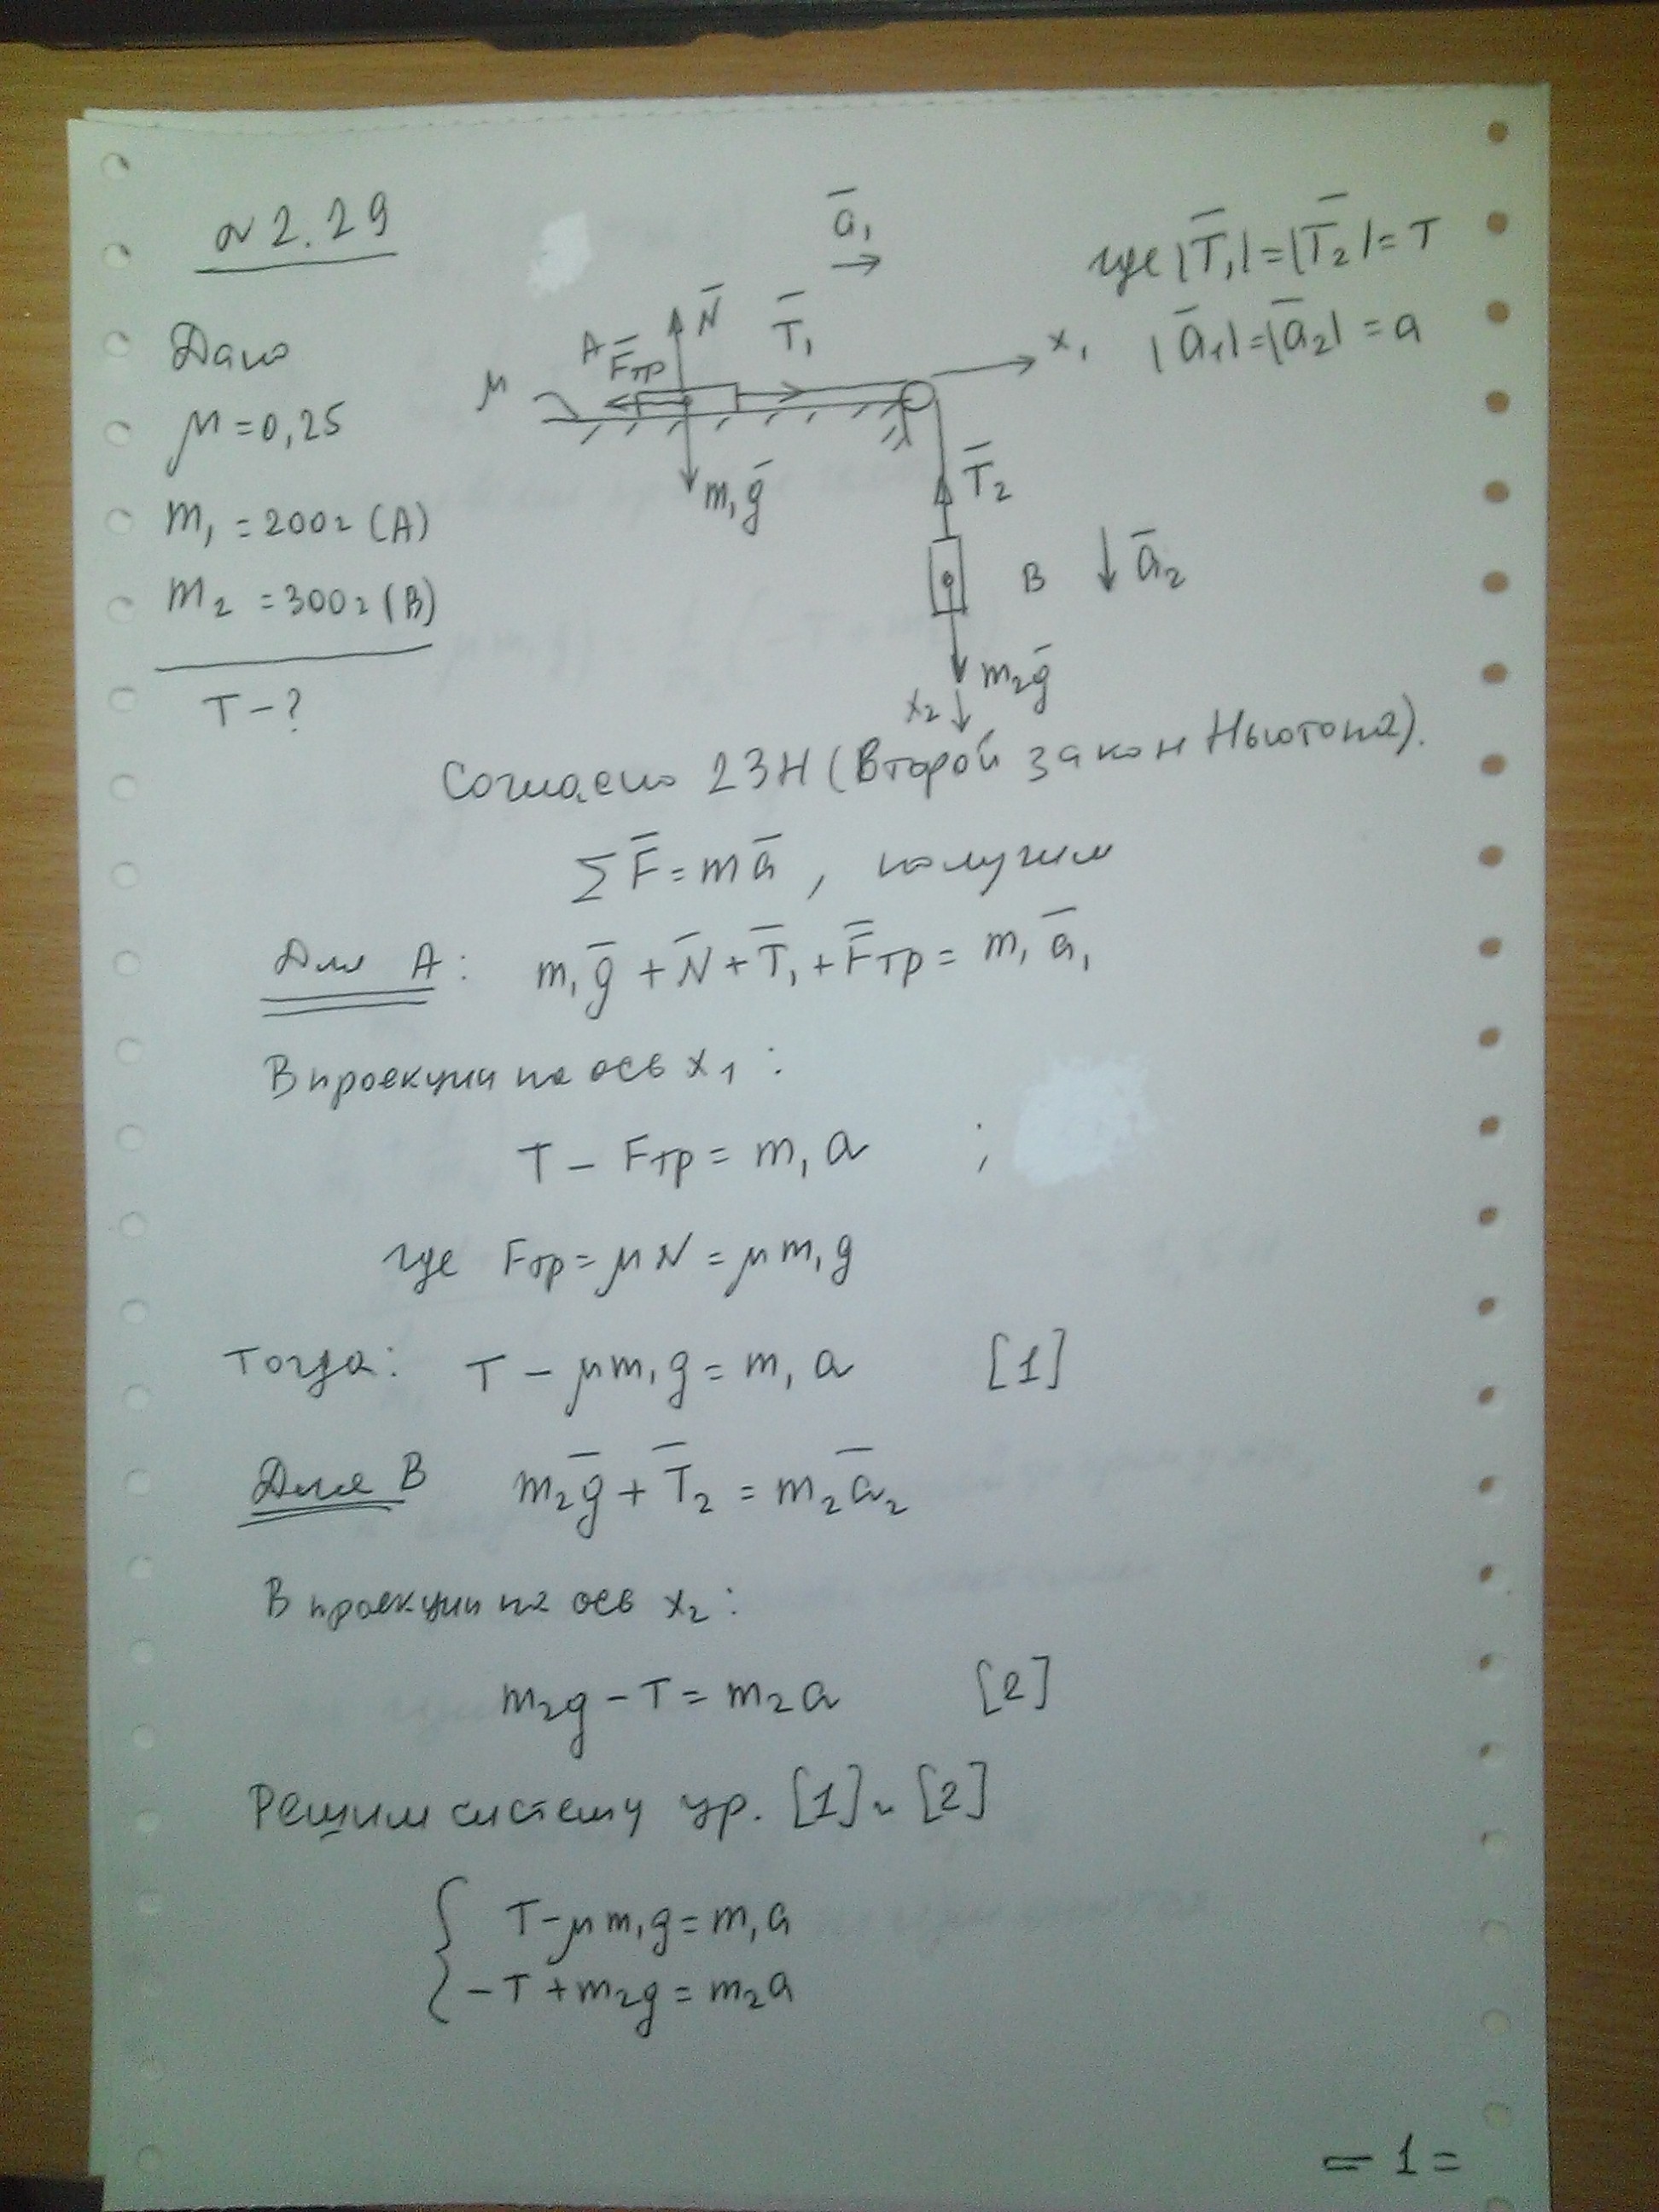 № 2.29
Дано
μ = 0,25
m₁ = 200г (A)
m₂ = 300г (B)
T - ?
ā₁
где |T̄₁| = |T̄₂| = T
|ā₁| = |ā₂| = a
μ
A
F̄тр
N̄
T̄₁
x₁
m₁ḡ
T̄₂
B
ā₂
m₂ḡ
x₂
Согласно 2ЗН (Второй закон Ньютона).
∑F̄ = mā, получим
Для A: m₁ḡ + N̄ + T̄₁ + F̄тр = m₁ā₁
В проекции на ось x₁:
T - Fтр = m₁a ;
где Fтр = μN = μm₁g
Тогда: T - μm₁g = m₁a [1]
Для B m₂ḡ + T̄₂ = m₂ā₂
В проекции на ось x₂:
m₂g - T = m₂a [2]
Решим систему ур. [1] и [2]
{ T - μm₁g = m₁a
-T + m₂g = m₂a
= 1 =